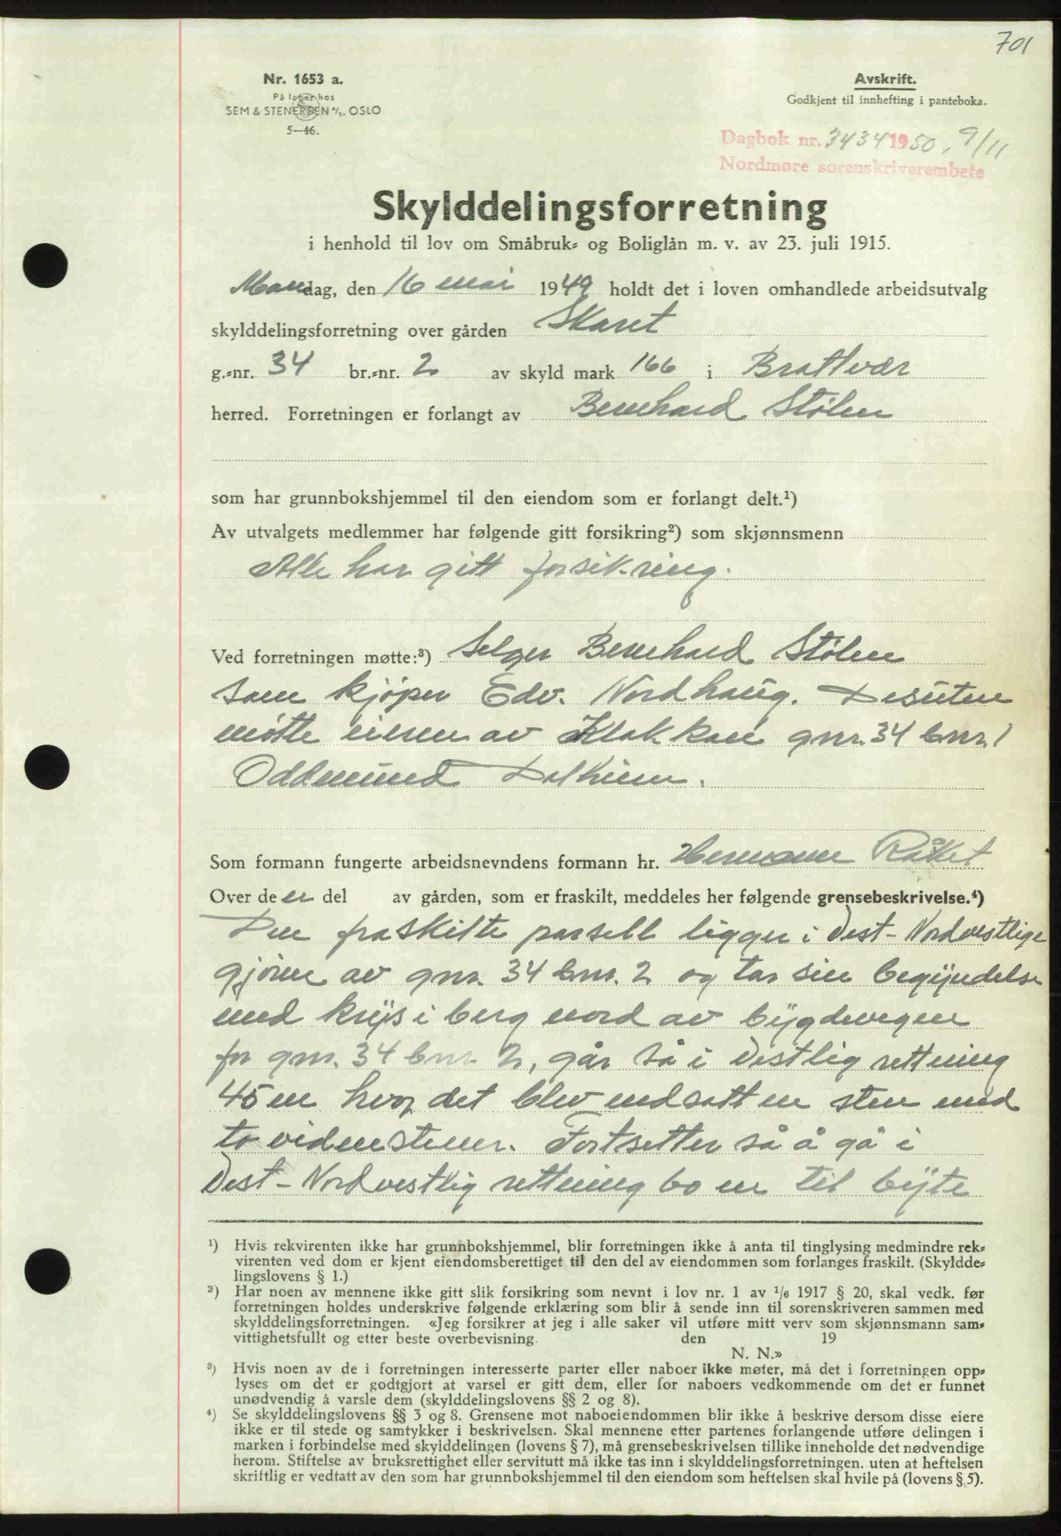 701
Nr. 1653 a.
På lager hos
SEM & STENERSEN A/S. OSLO
5—46.
Avskrift.
Godkjent til innhefting i panteboka.
Dagbok nr. 3434 1950, 9/11
Nordmøre sorenskriverembete
Skylddelingsforretning
i henhold til lov om Småbruk- og Boliglån m. v. av 23. juli 1915.
Mandag, den 16 mai 1949 holdt det i loven omhandlede arbeidsutvalg
skylddelingsforretning over gården Skaret
g.-nr. 34 br.-nr. 2 av skyld mark 166 i Brattvær
herred. Forretningen er forlangt av Bernhard Stølen
som har grunnbokshjemmel til den eiendom som er forlangt delt.¹)
Av utvalgets medlemmer har følgende gitt forsikring²) som skjønnsmenn
Alle har gitt forsikring.
Ved forretningen møtte:³) Selger Bernhard Stølen
som kjøper Edv. Nordhaug. Desuten
møtte eieren av Klakkan gnr. 34 bnr. 1
Oddmund Dalheim.
Som formann fungerte arbeidsnevndens formann hr. Hermann Råket
Over de er del av gården, som er fraskilt, meddeles her følgende grensebeskrivelse.⁴)
Den fraskilte parsell ligger i Vest-Nordvestlige
gjørne av gnr. 34 bnr. 2 og tar sin begyndelse
med kryss i berg nord av bygdevegen
for gnr. 34 bnr. 2, går så i Vestlig rettning
45 m hvor det blev nedsatt en sten med
to vidnestener. Fortsetter så å gå i
Vest-Nordvestlig rettning 60 m til byte
¹) Hvis rekvirenten ikke har grunnbokshjemmel, blir forretningen ikke å anta til tinglysing medmindre rek-
virenten ved dom er kjent eiendomsberettiget til den del av eiendommen som forlanges fraskilt. (Skyldde-
lingslovens § 1.)
²) Har noen av mennene ikke gitt slik forsikring som nevnt i lov nr. 1 av 1/6 1917 § 20, skal vedk. før
forretningen holdes underskrive følgende erklæring som blir å sende inn til sorenskriveren sammen med
skylddelingsforretningen. «Jeg forsikrer at jeg i alle saker vil utføre mitt verv som skjønnsmann sam-
vittighetsfullt og etter beste overbevisning. den 19
N. N.»
³) Hvis noen av de i forretningen interesserte parter eller naboer ikke møter, må det i forretningen opp-
lyses om det er godtgjort at varsel er gitt dem, eller for naboers vedkommende om det er funnet
unødvendig å varsle dem (skylddelingslovens §§ 2 og 8).
⁴) Se skylddelingslovens §§ 3 og 8. Grensene mot naboeiendommen blir ikke å beskrive dersom disse eiere
ikke er til stede og samtykker i beskrivelsen. Skal mennene etter partenes forlangende utføre delingen i
marken i forbindelse med skylddelingen (lovens § 7), må grensebeskrivelsen tillike inneholde det nødvendige
herom. Stiftelse av bruksrettighet eller servitutt må ikke tas inn i skylddelingsforretningen. uten at heftelsen
skriftlig er vedtatt av den som har grunnbokshjemmel til den eiendom som heftelsen skal hvile på (lovens § 5).